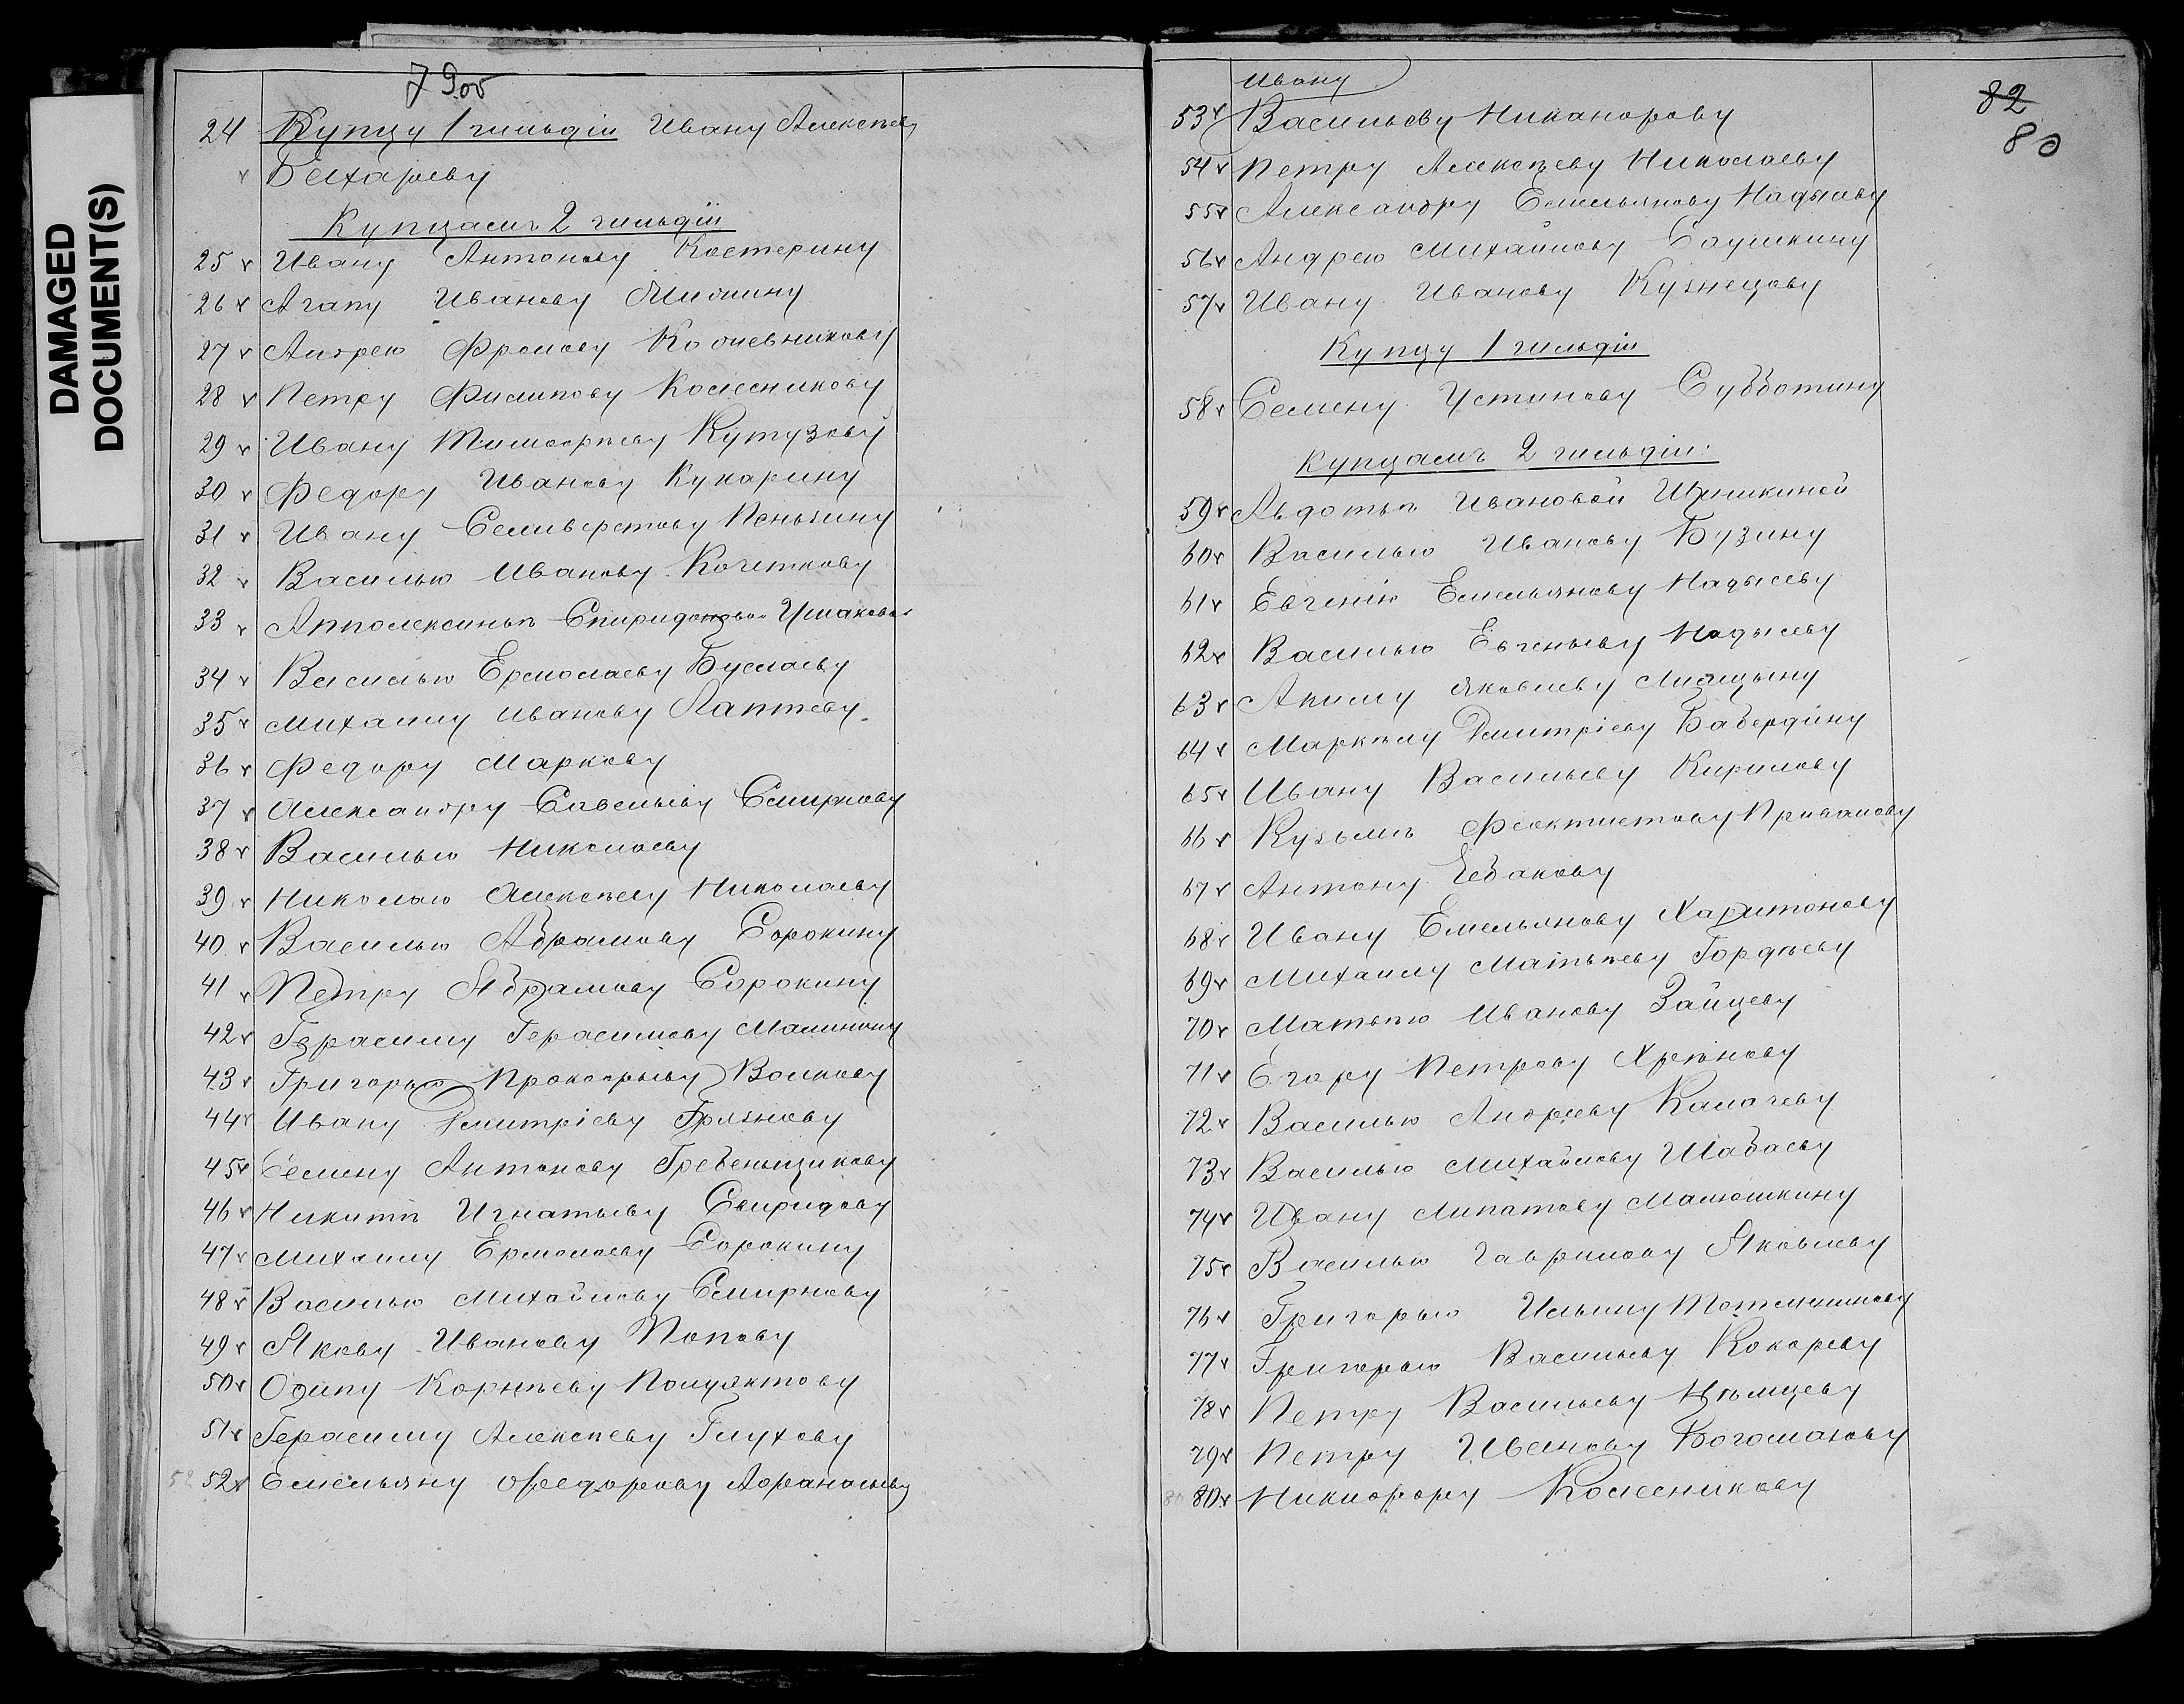 DAMAGED
DOCUMENT(S)
79об
24 Купцу 1 гильдіи Ивану Алексѣеву
v Бехареву
Купцамъ 2 гильдіи
25 v Ивану Антонову Костерину
26 v Агапу Иванову
27 v Андрею Фролову
28 v Петру Филипову Колесникову
29 v Ивану Тимофѣеву Кутузову
30 v Федору Иванову Кукарину
31 v Ивану Селиверстову Пенькину
32 v Василью Иванову Кочеткову
33 v Апполексиньѣ Ушаковой
34 v Василью Ермолаеву Буслаеву
35 v Михаилу Иванову Лаптеву
36 v Федору Маркову
37 v Александру Савельеву Смирнову
38 v Василью Николаеву
39 v Николаю Алексѣеву Николаеву
40 v Василью Абрамову Сорокину
41 v Петру Абрамову Сорокину
42 v Герасиму Герасимову Малинину
43 v Григорью Прокофьеву Волкову
44 v Ивану Дмитріеву Грязнову
45 v Семену Антонову Гребеньщикову
46 v Никитѣ Игнатьеву Свиридову
47 v Михаилу Ермолаеву Сорокину
48 v Василью Михайлову Смирнову
49 v Якову Иванову Попову
50 v Осипу Корнѣеву Полуэктову
51 v Герасиму Алексѣеву Глухову
52 52 v Емельяну Федорову Афанасьеву
Ивану
53 v Васильеву Никанорову
82
80
54 v Петру Алексѣеву Николаеву
55 v Александру Емельянову Надысеву
56 v Андрею Михайлову Саушкину
57 v Ивану Иванову Кузнецову
Купцу 1 гильдіи
58 v Семену Устинову Субботину
Купцамъ 2 гильдіи:
59 v Авдотьѣ Ивановой
60 v Василью Иванову Бузину
61 v Евгенію Емельянову Надысеву
62 v Василью Евгеньеву Надысеву
63 v Акиму Яковлеву
64 v Маркелу Дмитріеву Бабердину
65 v Ивану Васильеву Кирилову
66 v Кузьмѣ Феоктистову Привалову
67 v Антону Чебакову
68 v Ивану Емельянову Харитонову
69 v Михаилу Матвѣеву Гордѣеву
70 v Матвѣю Иванову Зайцеву
71 v Егору Петрову Хрѣнову
72 v Василью Андрееву Калачеву
73 v Василью Михайлову Шабаеву
74 v Ивану Липатову Малюшкину
75 v Василью Гаврилову Яковлеву
76 v Григорью Ильину
77 v Григорью Васильеву Кокореву
78 v Петру Васильеву Нѣмцеву
79 v Петру Иванову Богомолову
80 80 v Никифору Колесникову